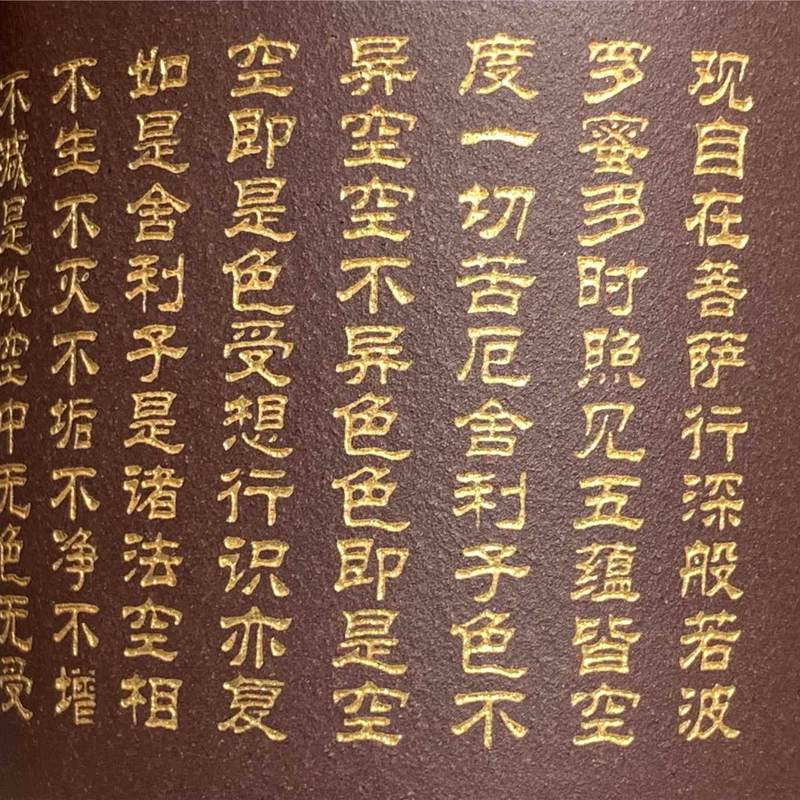 观自在菩萨行深般若波
罗蜜多时照见五蕴皆空
度一切苦厄舍利子色不
异空空不异色色即是空
空即是色受想行识亦复
如是舍利子是诸法空相
不生不灭不垢不净不增
不减是故空中无色无受